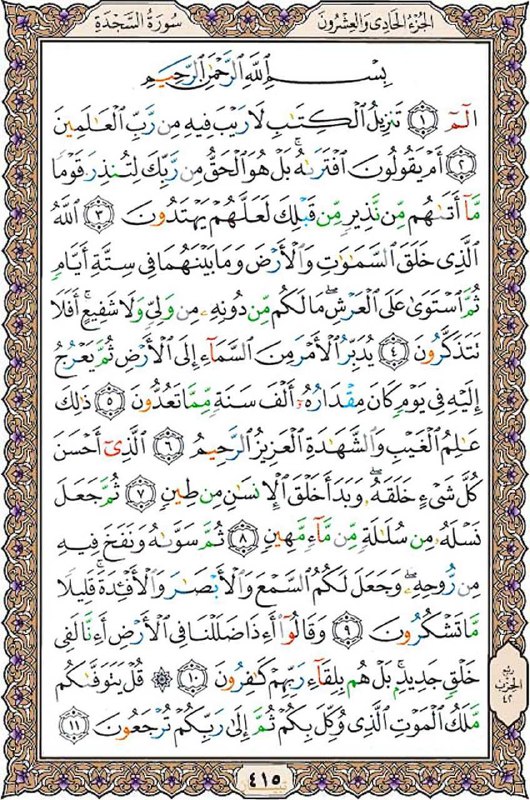 سُورَةُ السَّجْدَةِ
الجُزْءُ الحَادِى وَالعِشْرُونَ
بِسْمِ ٱللَّهِ ٱلرَّحْمَٰنِ ٱلرَّحِيمِ
الٓمٓ ١ تَنزِيلُ ٱلْكِتَٰبِ لَا رَيْبَ فِيهِ مِن رَّبِّ ٱلْعَٰلَمِينَ
٢ أَمْ يَقُولُونَ ٱفْتَرَىٰهُ ۚ بَلْ هُوَ ٱلْحَقُّ مِن رَّبِّكَ لِتُنذِرَ قَوْمًا
مَّآ أَتَىٰهُم مِّن نَّذِيرٍ مِّن قَبْلِكَ لَعَلَّهُمْ يَهْتَدُونَ ٣ ٱللَّهُ
ٱلَّذِى خَلَقَ ٱلسَّمَٰوَٰتِ وَٱلْأَرْضَ وَمَا بَيْنَهُمَا فِى سِتَّةِ أَيَّامٍ
ثُمَّ ٱسْتَوَىٰ عَلَى ٱلْعَرْشِ ۖ مَا لَكُم مِّن دُونِهِۦ مِن وَلِىٍّ وَلَا شَفِيعٍ ۚ أَفَلَا
تَتَذَكَّرُونَ ٤ يُدَبِّرُ ٱلْأَمْرَ مِنَ ٱلسَّمَآءِ إِلَى ٱلْأَرْضِ ثُمَّ يَعْرُجُ
إِلَيْهِ فِى يَوْمٍ كَانَ مِقْدَارُهُۥٓ أَلْفَ سَنَةٍ مِّمَّا تَعُدُّونَ ٥ ذَٰلِكَ
عَٰلِمُ ٱلْغَيْبِ وَٱلشَّهَٰدَةِ ٱلْعَزِيزُ ٱلرَّحِيمُ ٦ ٱلَّذِىٓ أَحْسَنَ
كُلَّ شَىْءٍ خَلَقَهُۥ ۖ وَبَدَأَ خَلْقَ ٱلْإِنسَٰنِ مِن طِينٍ ٧ ثُمَّ جَعَلَ
نَسْلَهُۥ مِن سُلَٰلَةٍ مِّن مَّآءٍ مَّهِينٍ ٨ ثُمَّ سَوَّىٰهُ وَنَفَخَ فِيهِ
مِن رُّوحِهِۦ ۖ وَجَعَلَ لَكُمُ ٱلسَّمْعَ وَٱلْأَبْصَٰرَ وَٱلْأَفْـِٔدَةَ ۚ قَلِيلًا
مَّا تَشْكُرُونَ ٩ وَقَالُوٓا۟ أَءِذَا ضَلَلْنَا فِى ٱلْأَرْضِ أَءِنَّا لَفِى
خَلْقٍ جَدِيدٍۭ ۚ بَلْ هُم بِلِقَآءِ رَبِّهِمْ كَٰفِرُونَ ١٠ ۞ قُلْ يَتَوَفَّىٰكُم
مَّلَكُ ٱلْمَوْتِ ٱلَّذِى وُكِّلَ بِكُمْ ثُمَّ إِلَىٰ رَبِّكُمْ تُرْجَعُونَ ١١
ربع
الحزب
٤٢
٤١٥